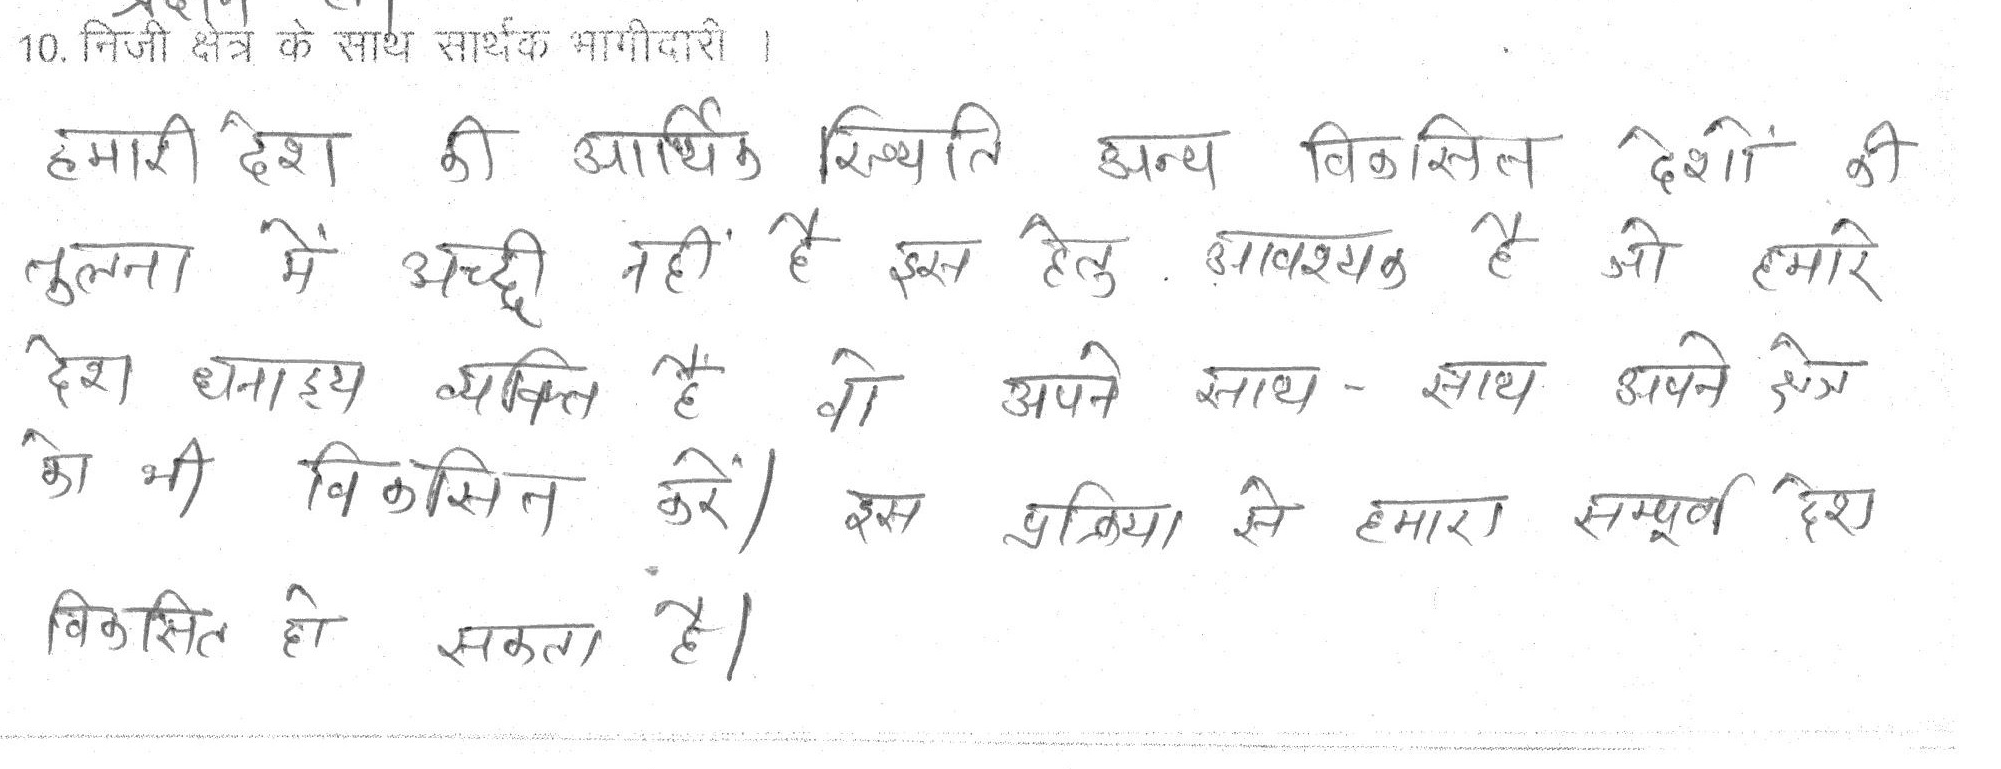 10. निजी क्षेत्र के साथ सार्थक भागीदारी ।
हमारी देश की आर्थिक स्थिति अन्य विकसित देशों की
तुलना में अच्छी नहीं है इस हेतु आवश्यक है जो हमारे
देश धनाड्य व्यक्ति हैं वो अपने साथ - साथ अपने क्षेत्र
को भी विकसित करें। इस प्रक्रिया से हमारा सम्पूर्ण देश
विकसित हो सकता है।